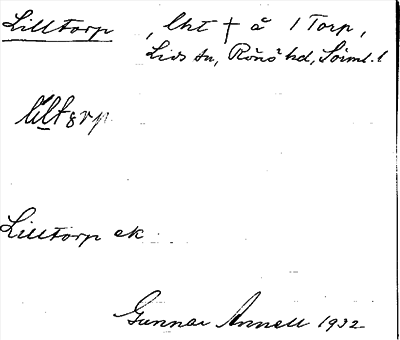 Lilltorp, lht † å 1 Torp,
Lids sn, Rönö hd, Söml. l
Lilltorp ek
Gunnar Annell 1932